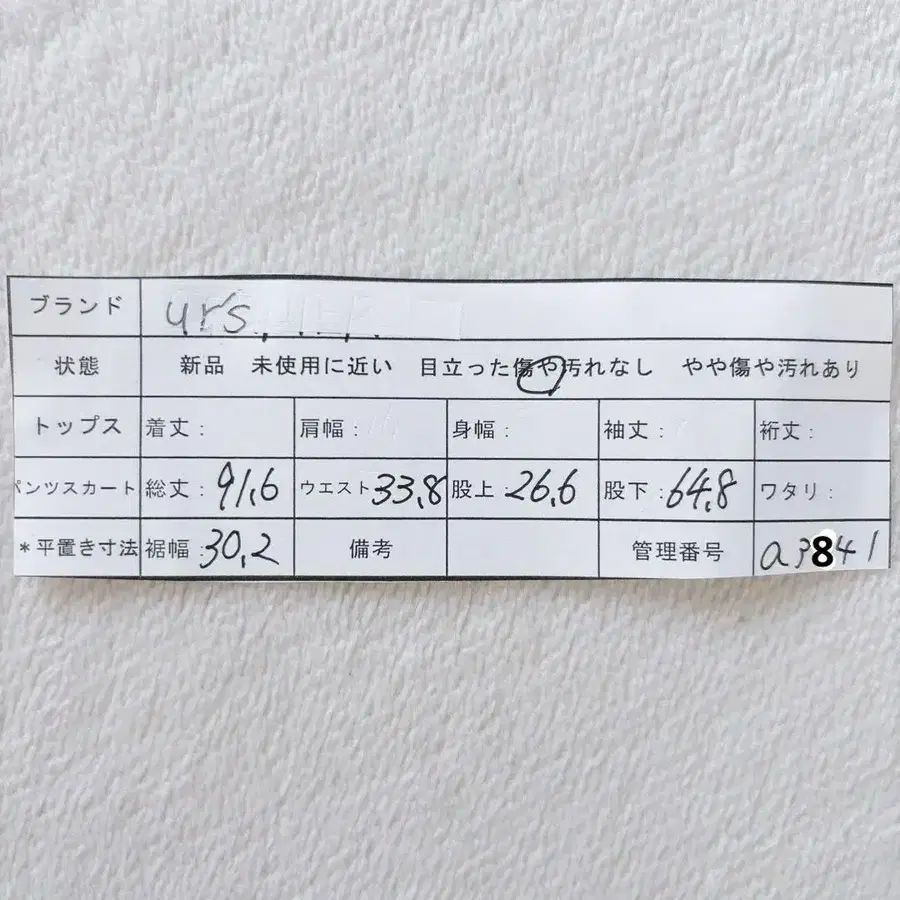 ブランド urs
状態 新品 未使用に近い 目立った傷や汚れなし やや傷や汚れあり
トップス 着丈: 肩幅: 身幅: 袖丈: 裄丈:
パンツスカート 総丈: 91,6 ウエスト 33,8 股上: 26,6 股下: 64,8 ワタリ:
*平置き寸法 裾幅: 30,2 備考 管理番号 a3841